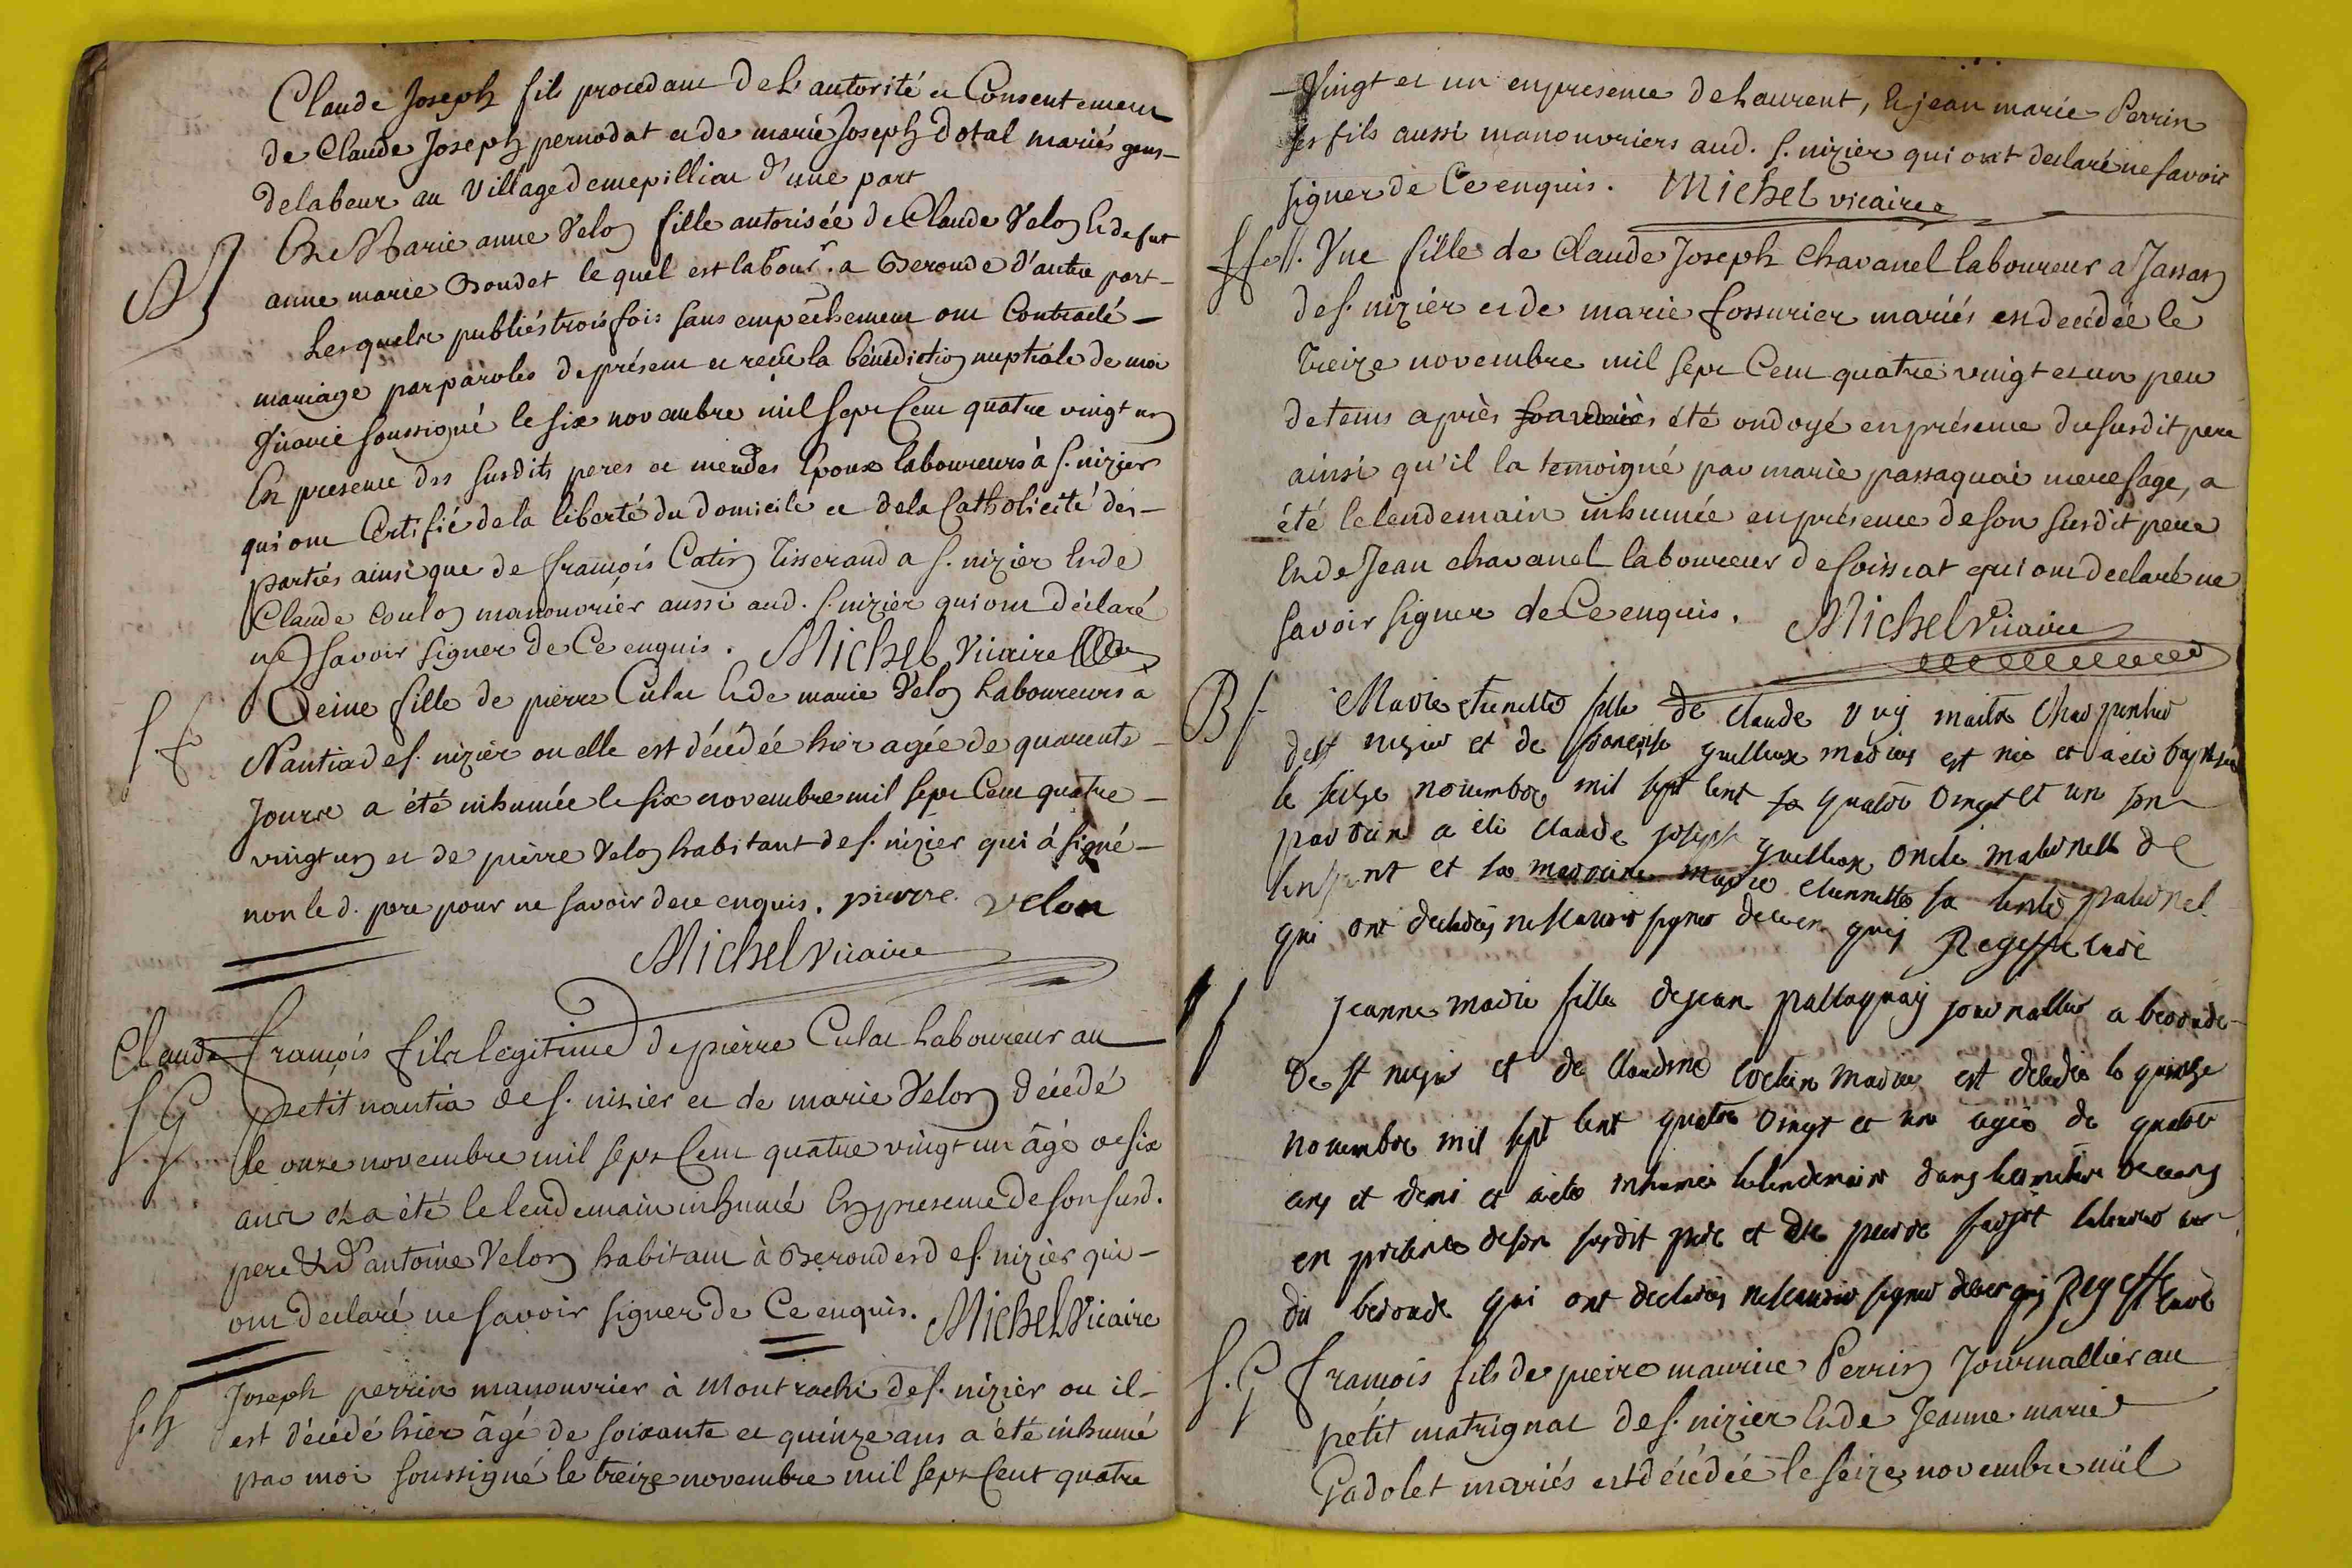 Claude Joseph fils procedant De L'autorité et Consentement
de Claude Joseph pernodat et de marie Joseph Dotal mariés gens
de labeur au Village de mepilliat d'une part
M Et Marie anne Velon fille autorisée de Claude Velon et de fut
anne marie Boudet le quel est labour. a Beronde d'autre part
Lesquels publiés trois fois sans empêchement ont Contracté
mariage par paroles de présent et reçu la bénédiction nuptiale de moi
Vicaire soussigné le six novembre mil sept Cent quatre vingt un
En presence des susdits peres et meres des Epoux laboureurs à S. nizier
qui ont Certifié de la liberté du domicile et de la Catholicité des
parties ainsi que de françois Catin Tisserand a S. nizier et de
Claude Coulon manouvrier aussi aud. S. nizier qui ont déclaré
ne savoir signer de Ce enquis. Michel Vicaire
S. f Reine fille de pierre Culat et de marie Velon Laboureurs a
Nantia de S. nizier ou elle est décédée hier agée de quarente
Jours a été inhumée le six novembre mil sept Cent quatre
vingt un et de pierre Velon habitant de S. nizier qui à signé
non le d. pere pour ne savoir de ce enquis. pierre velon
Michel Vicaire
Claude françois fils legitime de pierre Culat Laboureur au
S G petit nantia de S. nizier et de marie Velon décédé
le onze novembre mil sept Cent quatre vingt un âgé de six
ans et a été le lendemain inhumé En presence de son susd.
pere et d'antoine Velon habitant à Beronde de S. nizier qui
ont declaré ne savoir signer de Ce enquis. Michel Vicaire
S. h Joseph perrin manouvrier à Montrachi de S. nizier ou il
est décédé hier âgé de soixante et quinze ans a été inhumé
par moi soussigné le treize novembre mil sept Cent quatre
Vingt et un en presence de Laurent, et jean marie Perrin
ses fils aussi manouvriers aud. S. nizier qui ont declaré ne savoir
signer de Ce enquis. Michel vicaire
Une fille de Claude Joseph Chavanel laboureur a Jassan
de S. nizier et de marie fossurier mariés est décédée le
treize novembre mil sept Cent quatre vingt et un peu
de tems après été ondoyé en présence du susdit pere
ainsi qu'il la temoigné par marie passaquai mere sage, a
été le lendemain inhumée en présence de son susdit pere
Et de Jean chavanel laboureur de foissiat qui ont declaré ne
savoir signer de Ce enquis. Michel Vicaire
B f Marie etienette fille de claude vuy maitre Charpentier
de st nizier et de francoise guilleux mariés est née et a été baptisée
le seize novembre mil sept cent quatre vingt et un son
parrain a été claude joseph guilleux oncle maternelle de
lenfant et sa marraine marie etiennette sa tante paternel
qui ont declarés ne scavoir signer de ce en quis Regeffe curé
S f Jeanne marie fille de jean passaquay journallier a beronde
de st nizier et de claudine Cochin mariés est decedée le quinze
novembre mil sept cent quatre vingt et un agée de quatre
ans et demi et a été inhumée le lendemain dans le cimetiere de ceans
en presence de son susdit pere et de pierre farjot laboureur au
dit beronde qui ont declarés ne scavoir signer de ce en quis Regeffe curé
S. G françois fils de pierre maurice Perrin Journallier au
petit matrignat de S. nizier Et de Jeanne marie
Gadolet mariés est décédée le seize novembre mil